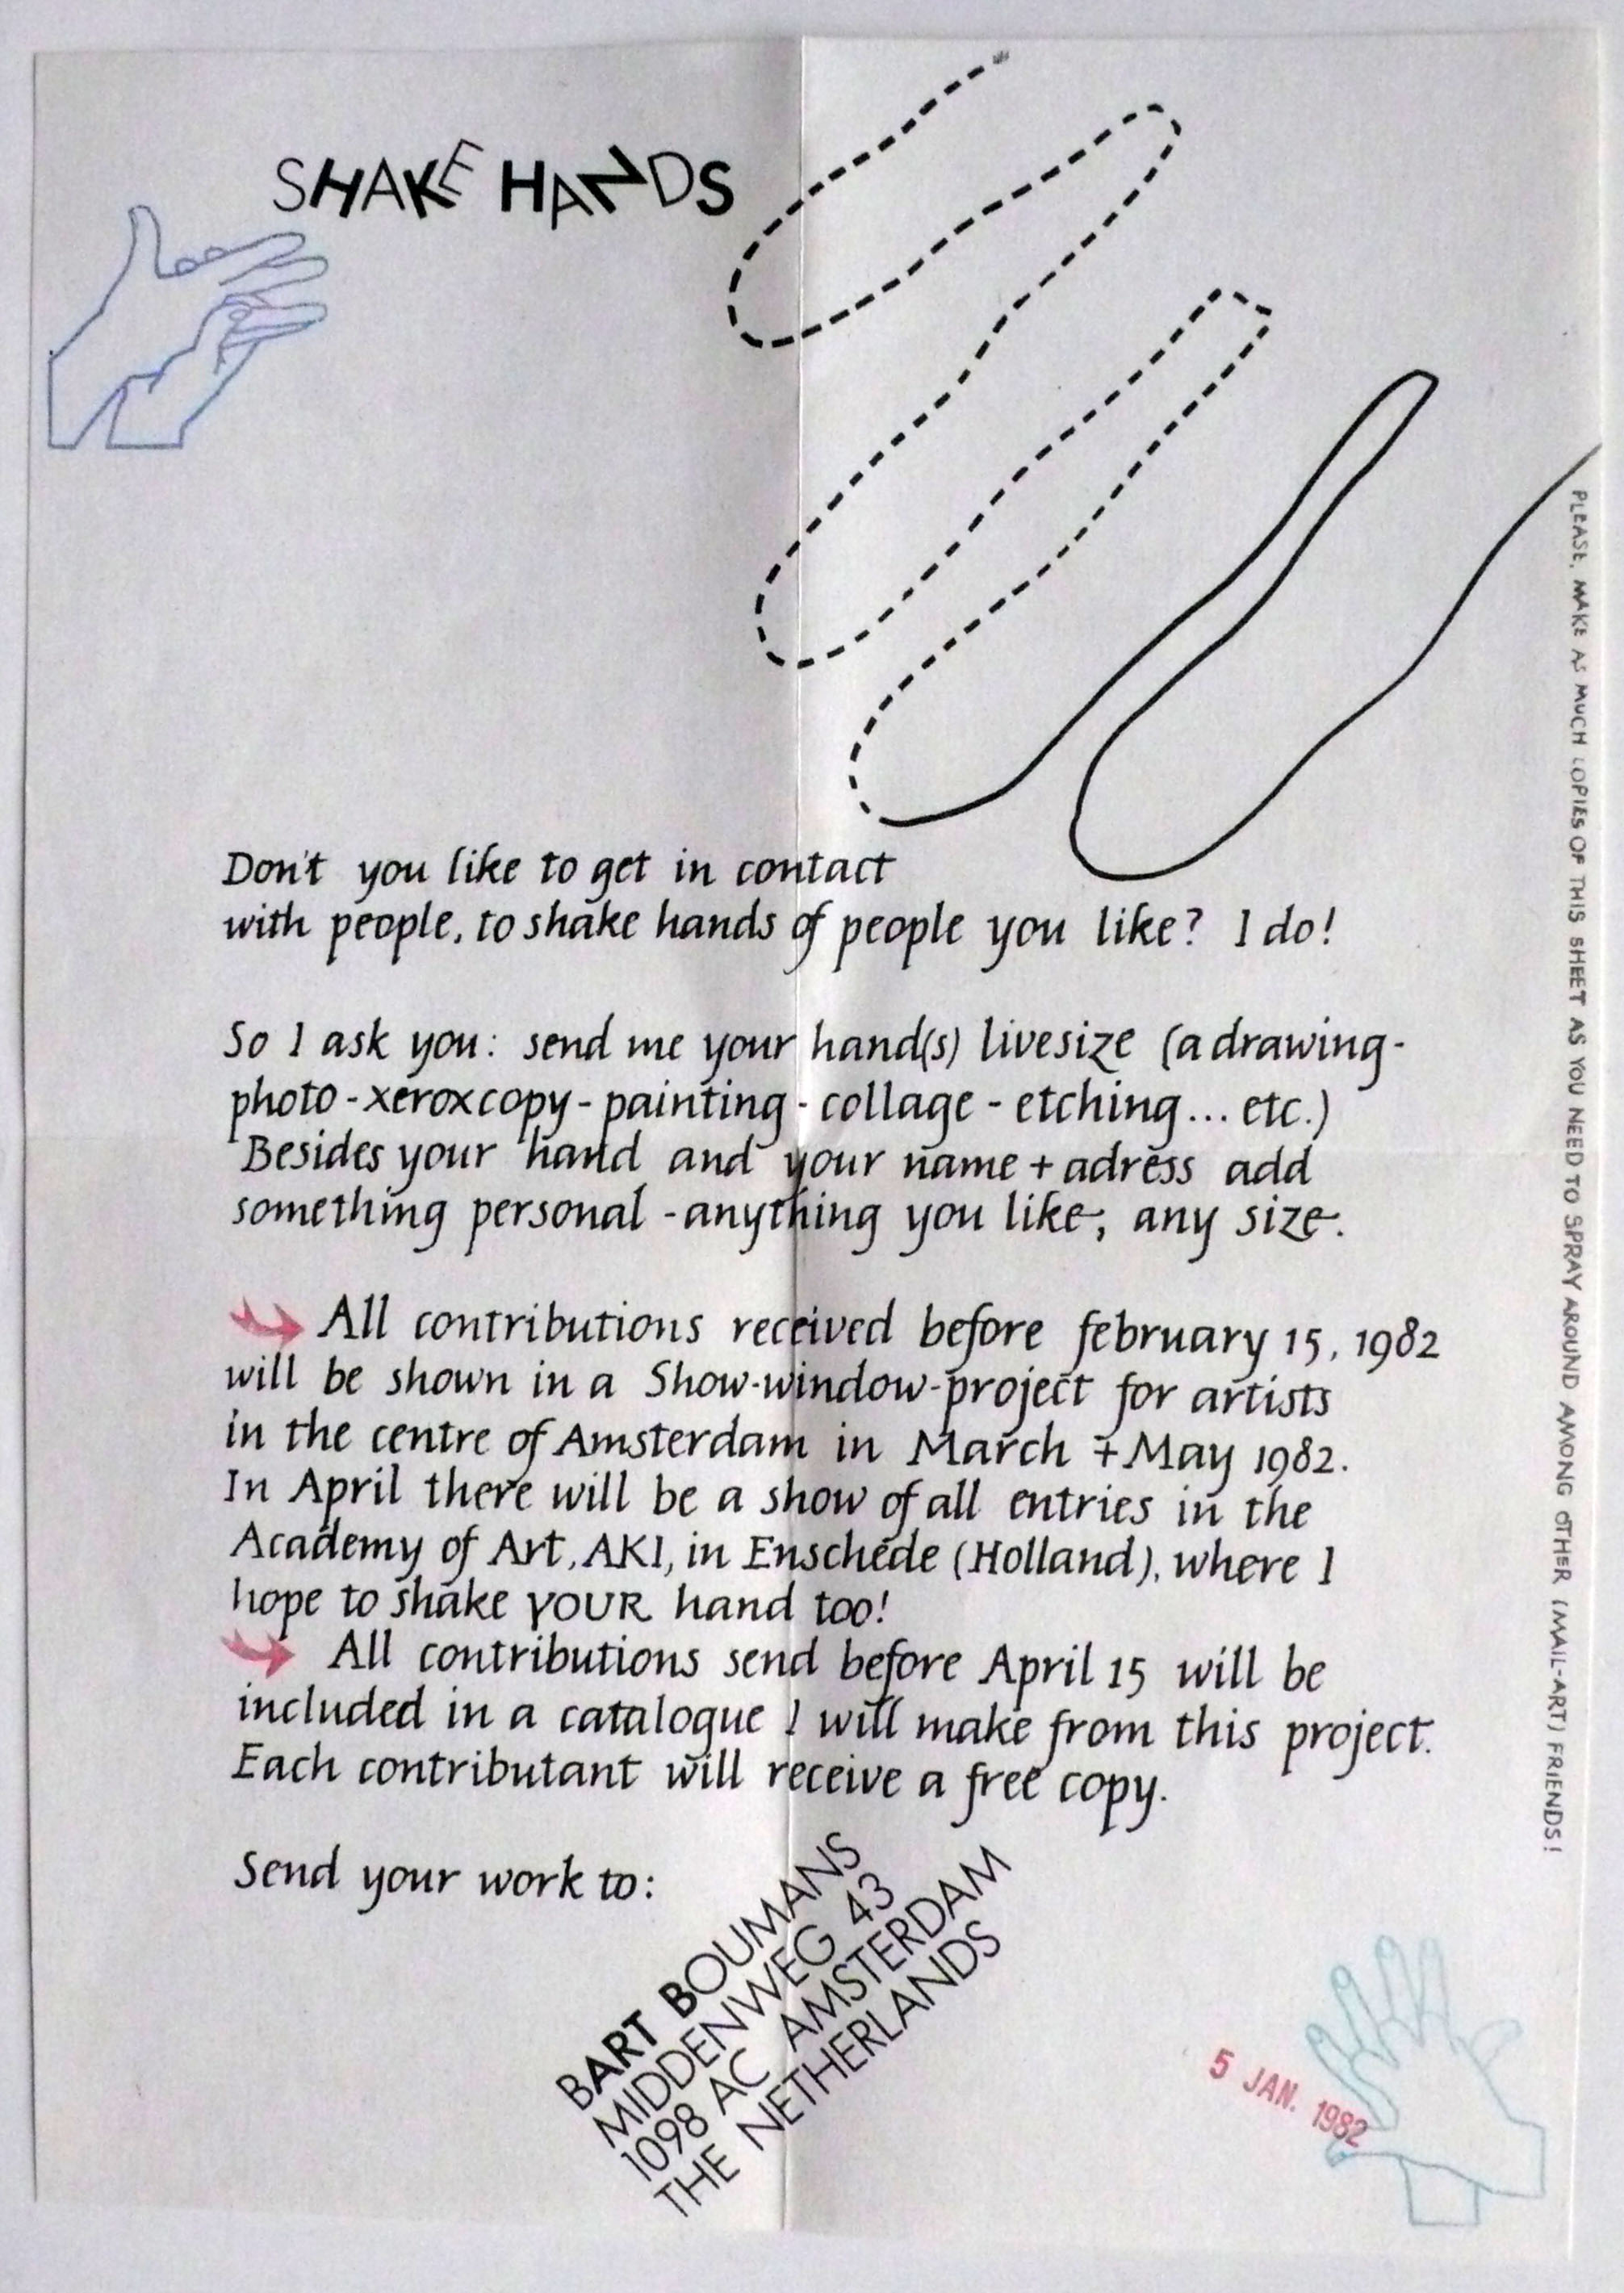 SHAKE HANDS
Don't you like to get in contact
with people, to shake hands of people you like? I do!
So I ask you: send me your hand(s) livesize (a drawing-
photo - xeroxcopy - painting - collage - etching... etc.)
Besides your hand and your name + adress add
something personal - anything you like, any size.
All contributions received before february 15, 1982
will be shown in a Show-window-project for artists
in the centre of Amsterdam in March + May 1982.
In April there will be a show of all entries in the
Academy of Art, AKI, in Enschede (Holland), where I
hope to shake YOUR hand too!
All contributions send before April 15 will be
included in a catalogue I will make from this project.
Each contributant will receive a free copy.
Send your work to:
BART BOUMANS
MIDDENWEG 43
1098 AC AMSTERDAM
THE NETHERLANDS
5 JAN. 1982
PLEASE, MAKE AS MUCH COPIES OF THIS SHEET AS YOU NEED TO SPRAY AROUND AMONG OTHER (MAIL-ART) FRIENDS!